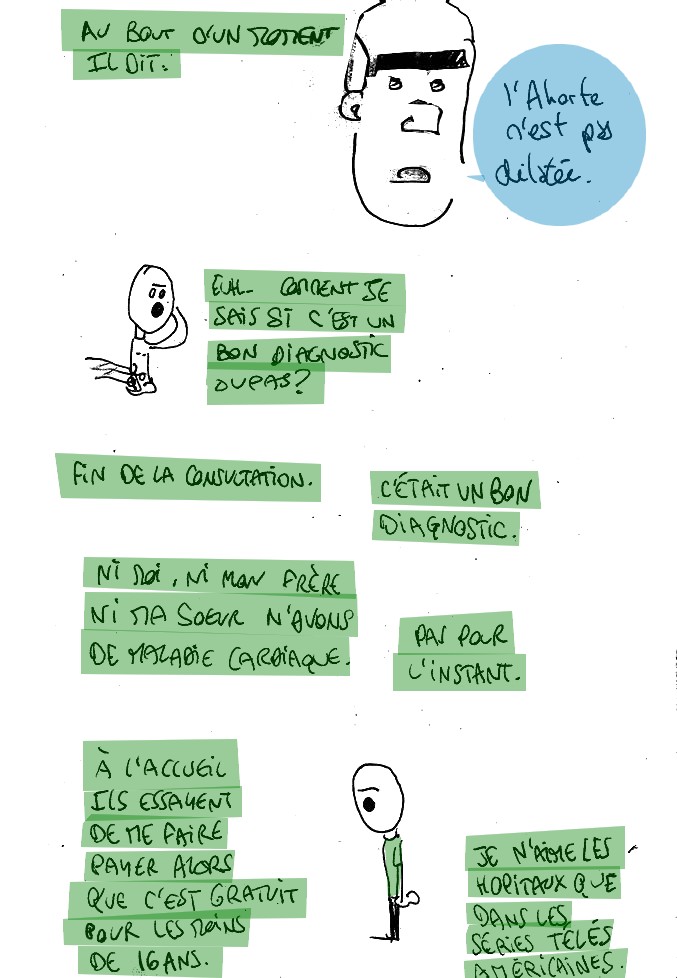 AU BOUT D'UN MOMENT
IL DIT:
l'Ahorte
n'est pas
dilatée.
EUH... COMMENT JE
SAIS SI C'EST UN
BON DIAGNOSTIC
OU PAS?
FIN DE LA CONSULTATION.
C'ÉTAIT UN BON
DIAGNOSTIC.
NI MOI, NI MON FRÈRE
NI MA SOEUR N'AVONS
DE MALADIE CARDIAQUE.
PAS POUR
L'INSTANT.
À L'ACCUEIL
ILS ESSAYENT
DE ME FAIRE
PAYER ALORS
QUE C'EST GRATUIT
POUR LES MOINS
DE 16 ANS.
JE N'AIME LES
HOPITAUX QUE
DANS LES
SÉRIES TÉLÉS
AMÉRICAINES.